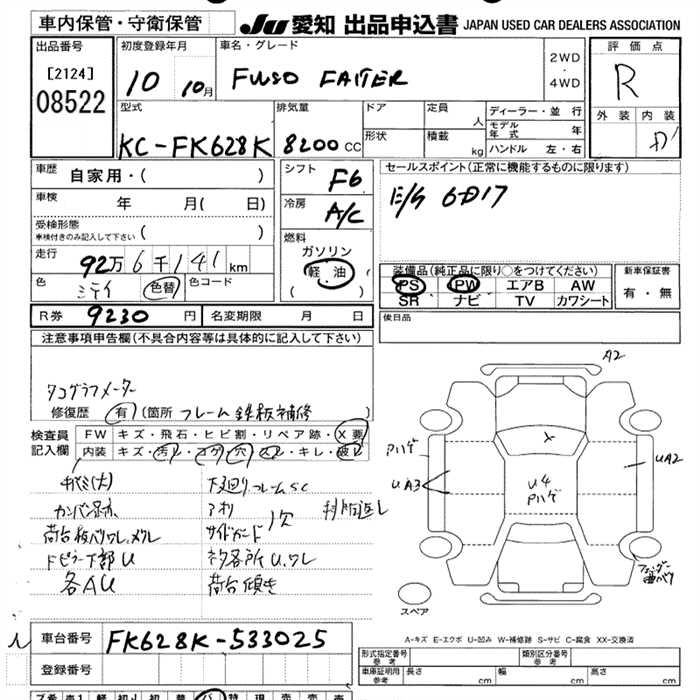 車内保管・守衛保管
JU 愛知 出品申込書 JAPAN USED CAR DEALERS ASSOCIATION
出品番号
[2124]
08522
初度登録年月
10 10月
車名・グレード
FUSO FAITER
2WD
・
4WD
評価点
R
外装 内装
D'
型式
KC-FK628K
排気量
8200 CC
ドア
形状
定員
人
積載
kg
ディーラー・並行
モデル年式 年
ハンドル 左・右
車歴
自家用・( )
車検
年 月( 日)
受検形態
車検付きのみ記入して下さい ( )
走行
92万6千141km
色
シテイ 色替
色コード
シフト
F6
冷房
A/C
燃料
ガソリン
軽油
( )
セールスポイント(正常に機能するものに限ります)
E/G 6D17
装備品(純正品に限り○をつけてください)
PS PW エアB AW
SR ナビ TV カワシート
新車保証書
有・無
R券 9230 円
名変期限 月 日
後日品
注意事項申告欄(不具合内容等は具体的に記入して下さい)
タコグラフメーター
修復歴 有 (箇所 フレーム鉄板補修 )
検査員
記入欄
FW キズ・飛石・ヒビ割・リペア跡・X要
内装 キズ・汚れ・コゲ・穴・スレ・キレ・破れ
カンバン跡
荷台板バワレ,メクレ
ドピラー下部U
各AU
下廻りフレームSC
アオリ
サイドガード
ネタ各所U,ワレ
荷台傾き
A2
Pハゲ
UA3
U4
Pハゲ
UA2
フェンダー
曲がり
スペア
A-キズ E-エクボ U-凹み W-補修跡 S-サビ C-腐食 XX-交換済
車台番号 FK628K-533025
登録番号
形式指定番号
参考
類別区分番号
参考
車庫証明用
参考
長さ 幅 高さ
cm cm cm